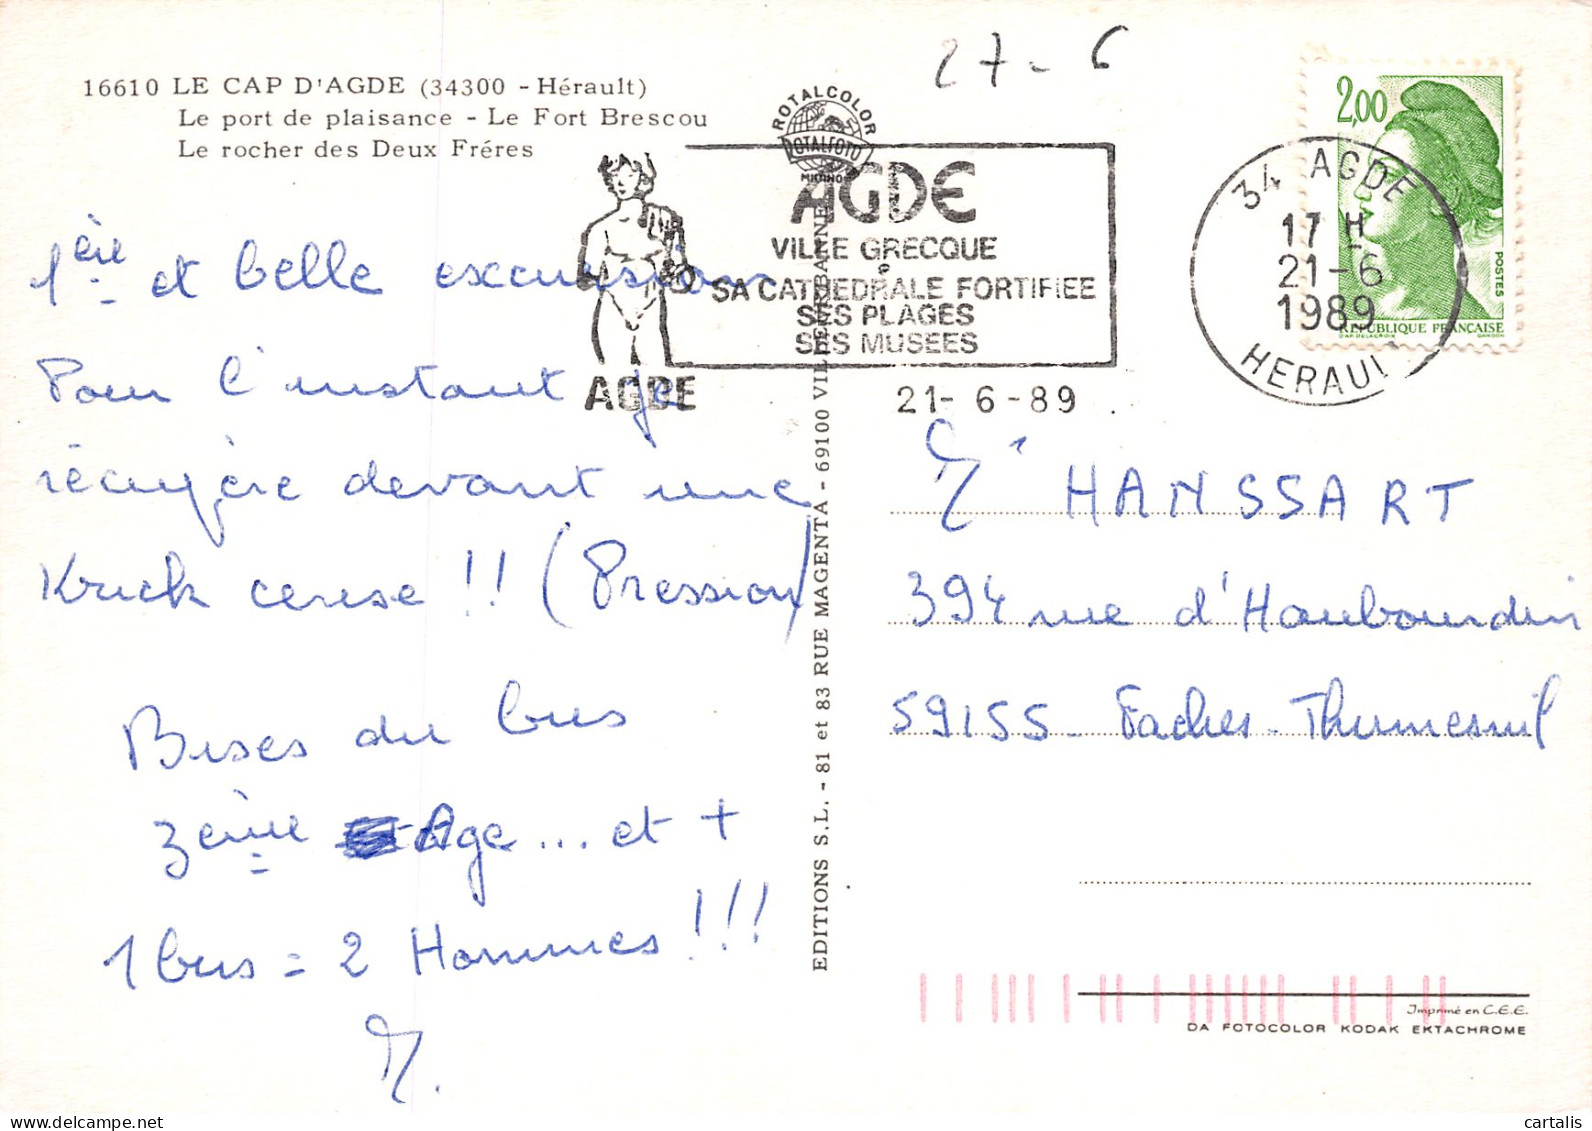 27-6
16610 LE CAP D'AGDE (34300 - Hérault)
Le port de plaisance - Le Fort Brescou
Le rocher des Deux Fréres
ROTALCOLOR
ROTALFOTO
MILANO
AGDE
VILLE GRECQUE
SA CATHEDRALE FORTIFIEE
SES PLAGES
SES MUSEES
AGDE
21-6-89
2,00
POSTES
REPUBLIQUE FRANÇAISE
D'AP. DELACROIX GANDON
34 AGDE
17 H
21-6
1989
HERAULT
1ère et belle excursion
Pour l'instant je
récupère devant une
Krick cerise !! (Pression)
Bises du bus
3ème Age... et +
1 bus = 2 Hommes !!!
EDITIONS S.L. - 81 et 83 RUE MAGENTA - 69100 VILLEURBANNE
HANSSART
394 rue d'Haubourdin
59155 - Faches-Thumesnil
Imprimé en C.E.E.
DA FOTOCOLOR KODAK EKTACHROME
cartalis